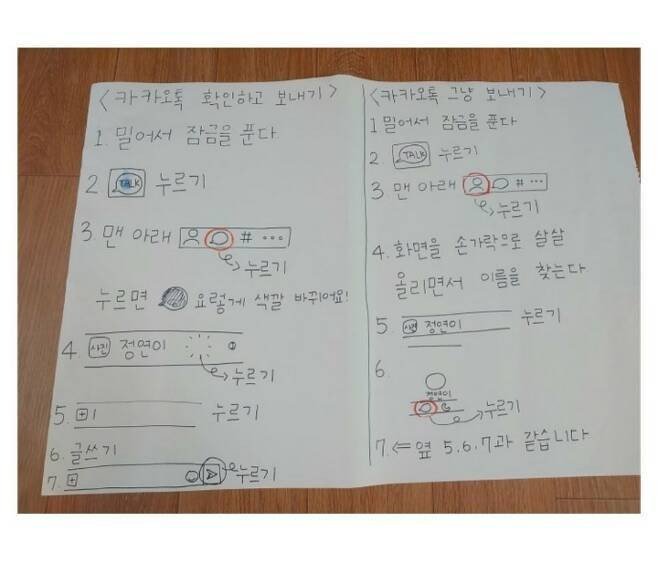 <카카오톡 확인하고 보내기>
1. 밀어서 잠금을 푼다
2 TALK 누르기
3. 맨 아래 # ...
누르기
누르면 요렇게 색깔 바뀌어요!
4. 사진 정연이
누르기
5. + 누르기
6. 글쓰기
7. + 누르기
<카카오톡 그냥 보내기>
1 밀어서 잠금을 푼다
2. TALK 누르기
3 맨 아래 # ...
누르기
4. 화면을 손가락으로 살살
올리면서 이름을 찾는다
5. 사진 정연이 누르기
6.
정연이
누르기
7. ⇐ 옆 5.6.7과 같습니다